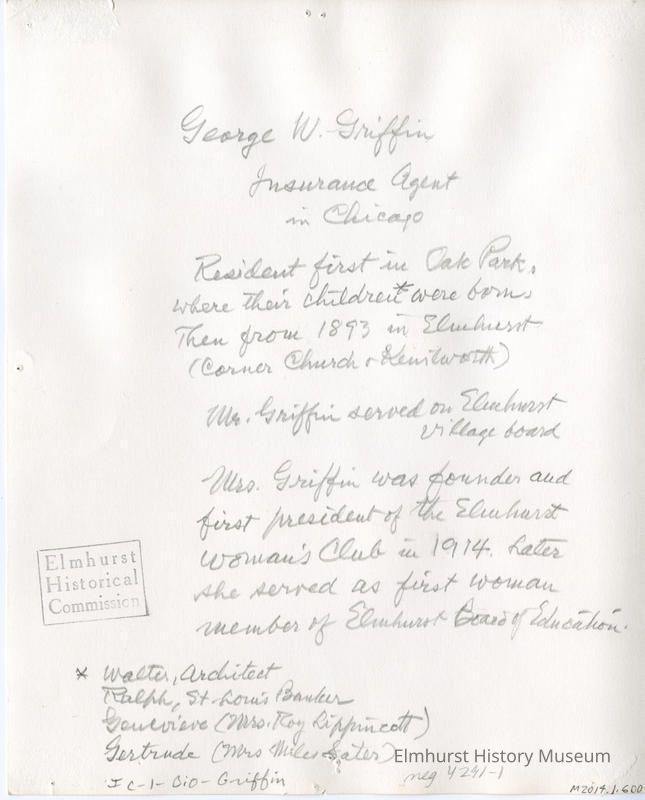 George W. Griffin
Insurance Agent
in Chicago
Resident first in Oak Park,
where their children* were born.
Then from 1893 in Elmhurst
(Corner Church & Kenilworth)
Mr. Griffin served on Elmhurst
village board
Mrs. Griffin was founder and
first president of the Elmhurst
Woman's Club in 1914. Later
she served as first woman
member of Elmhurst Board of Education.
Elmhurst
Historical
Commission
* Walter, Architect
Ralph, St. Louis Banker
Genevieve (Mrs. Roy Lippincott)
Gertrude (Mrs Miles Cater)
Elmhurst History Museum
I C-1-Bio-Griffin
neg 4241-1
M2014.1.600